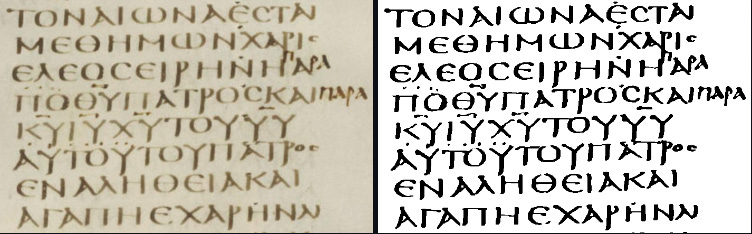 ΤΟΝΑΙΩΝΑΕϹΤΑΙ
ΜΕΘΗΜΩΝΧΑΡΙϹ
ΕΛΕΟϹΕΙΡΗΝΗΠΑΡΑ
ΠΟΘ̅Υ̅ΠΑΤΡΟϹΚΑΙΠΑΡΑ
Κ̅Υ̅Ι̅Υ̅Χ̅Υ̅ΤΟΥΥ̅Υ̅
ΑΥΤΟΥΤΟΥΠΑΤΡΟϹ
ΕΝΑΛΗΘΕΙΑΚΑΙ
ΑΓΑΠΗΕΧΑΡΗΝΛΙ
ΤΟΝΑΙΩΝΑΕϹΤΑΙ
ΜΕΘΗΜΩΝΧΑΡΙϹ
ΕΛΕΟϹΕΙΡΗΝΗΠΑΡΑ
ΠΟΘ̅Υ̅ΠΑΤΡΟϹΚΑΙΠΑΡΑ
Κ̅Υ̅Ι̅Υ̅Χ̅Υ̅ΤΟΥΥ̅Υ̅
ΑΥΤΟΥΤΟΥΠΑΤΡΟϹ
ΕΝΑΛΗΘΕΙΑΚΑΙ
ΑΓΑΠΗΕΧΑΡΗΝΛΙ